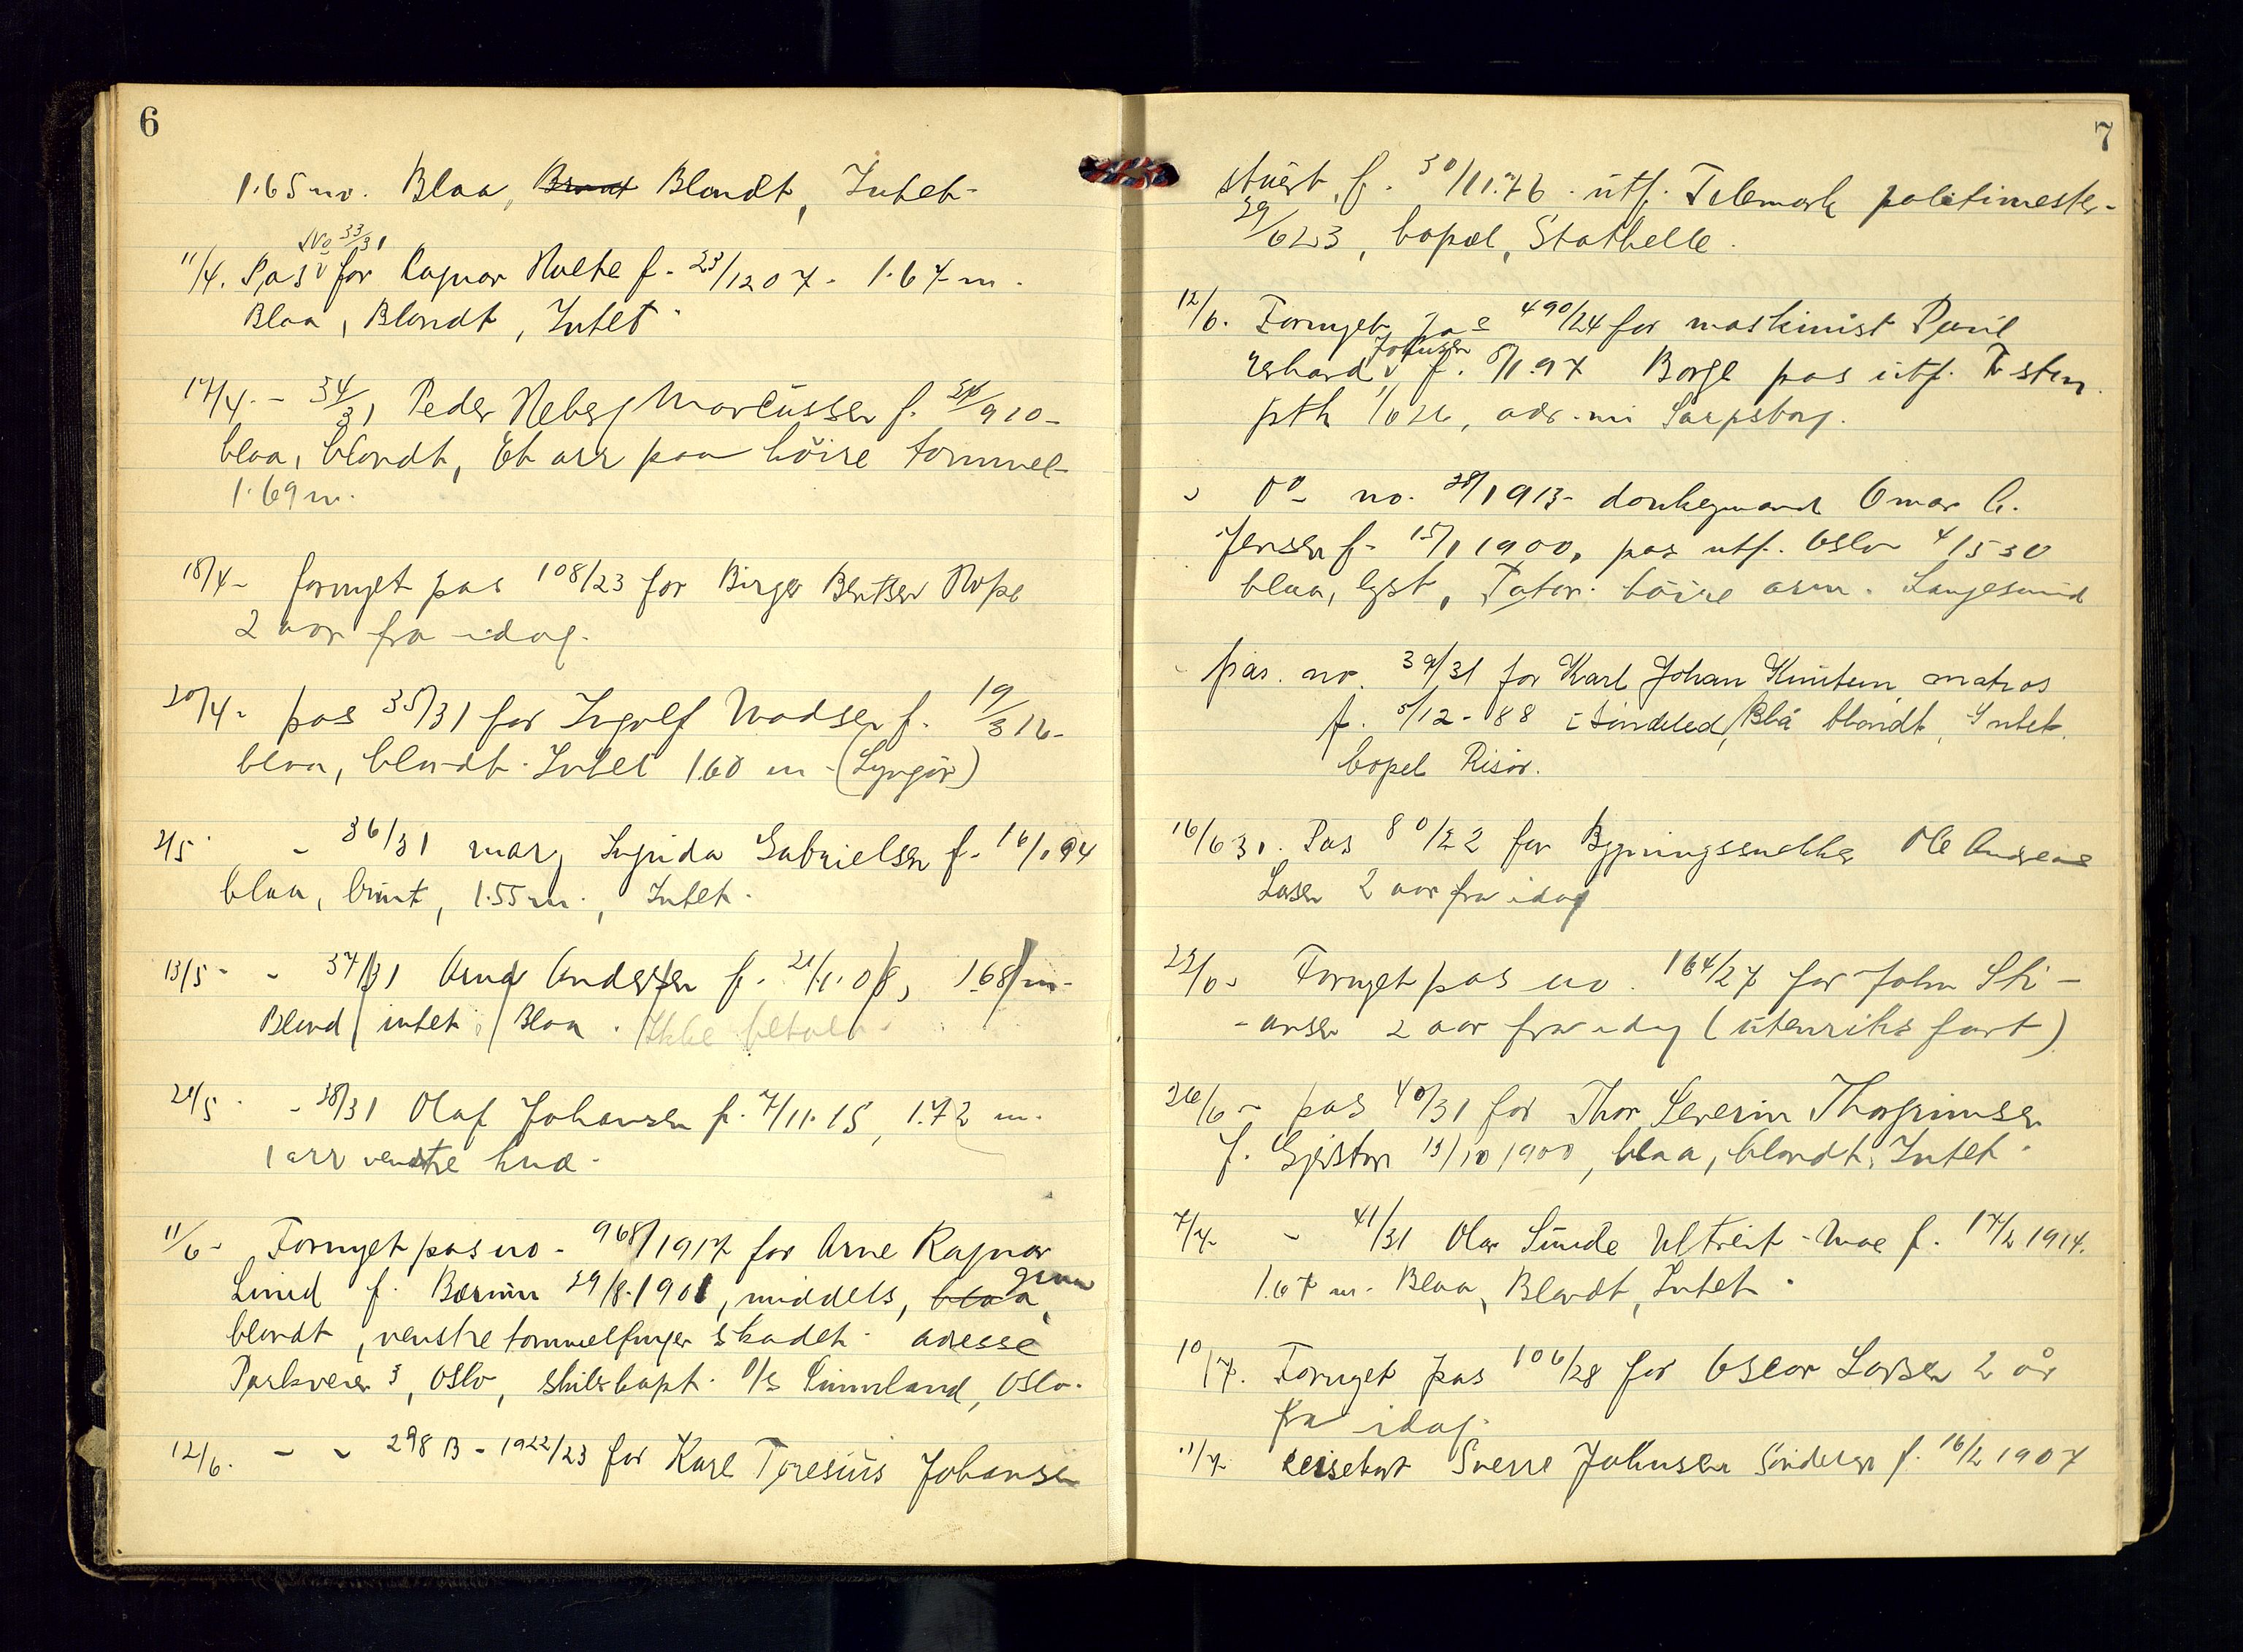 6
1.65 m. Blaa, Brunt Blondt, Intet-
No 33/31
11/4. Pas for Ragnar f. 23/12 07. 1.67 m.
Blaa, Blondt, Intet
17/4. - 34/31 Peder Heberg Marcussen f. /9 10-
blaa, blondt, Et arr paa höire tommel-
1.69 m.
18/4 - fornyet pas 108/23 for Birger Bentsen Hope
2 aar fra idag.
20/4 - pas 35/31 for Ingolf Madsen f. 19/3 12-
blaa, blondt. Intet 1.60 m - (Lyngör)
2/5 - 36/31 Ingrida Gabrielsen f. 16/1 94
blaa, brunt, 1.55 m., Intet.
13/5 - - 37/31 Arne Andersen f. 21/1. 08, 1.68 m-
Blond, intet, Blaa. Ikke betalt.
21/5 - - 38/31 Olaf Johansen f. 7/11. 15, 1.72 m.
1 arr venstre kne.
11/6 - Fornyet pas no - 968/1917 for Arne Ragnar
Lund f. Bærum 29/8. 1901, middels, blaa, graa
blondt, venstre tommelfinger skadet. adresse
Parkveien 3, Oslo, skibskapt. Oslo.
12/6. - - 298 B - 1922/23 for Karl Teresius Johansen
7
stuert, f. 30/11. 76. utf. Telemark politimester-
29/6 23, bopæl, Stathelle.
12/6. Fornyet pas 490/24 for maskinist Paul
Johnsen
Gerhard f. 5/1. 97 Borge pas utf.
ptk 1/6 26, adr. nu Sarpsborg.
- Do - no. 28/1913 - donkeymand Omar C.
Jensen f. 15/1 1900, pas utf. Oslo 4/5 30
blaa, lyst, Tator. höire arm. Langesund
- pas. no. 39/31 for Karl Johan Knutsen matros
f. 5/12 - 88 i Söndeled, Blå blondt, Intet.
bopel Risör.
16/6 31. Pas 80/22 for Bygningssnekker Ole Andreas
Larsen 2 aar fra idag
23/6 - Fornyet pas no. 164/27 for John Sti-
-ansen 2 aar fra idag (utenriks fart)
26/6 - pas 40/31 for Thor Severin Thorgrimsen
f. Gjerstad 13/10 1900, blaa, blondt, Intet.
7/7 - 41/31 Olav Sunde Ultveit-Moe f. 17/2 1914.
1.67 m. Blaa, Blondt, Intet.
10/7. Fornyet pas 106/28 for Oscar Larsen 2 år
fra idag.
11/7. Sverre Johnsen Sönderled f. 16/2 1907